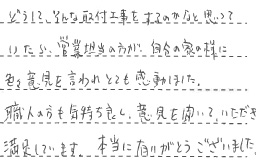 どうして、そんな取付工事をするのかなと思って
いたら、営業担当の方が、自分の家の様に
色々意見を言われとても感動しました。
職人の方も気持ち良く、意見を聞いていただき
満足しています。本当に有りがとうございました